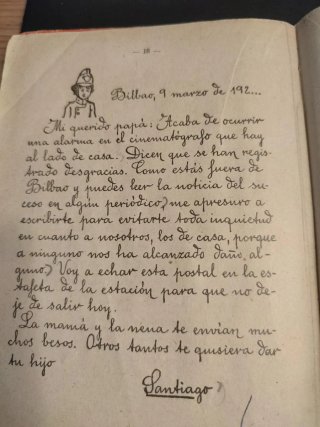 — 18 —
Bilbao, 9 marzo de 192...
Mi querido papá: Acaba de ocurrir
una alarma en el cinematógrafo que hay
al lado de casa. Dicen que se han regis-
trado desgracias. Como estás fuera de
Bilbao y puedes leer la noticia del su-
ceso en algún periódico, me apresuro a
escribirte para evitarte toda inquietud
en cuanto a nosotros, los de casa, porque
a ninguno nos ha alcanzado daño, al-
guno. Voy a echar esta postal en la es-
tafeta de la estación para que no de-
je de salir hoy.
La mamá y la nena te envían mu-
chos besos. Otros tantos te quisiera dar
tu hijo
Santiago